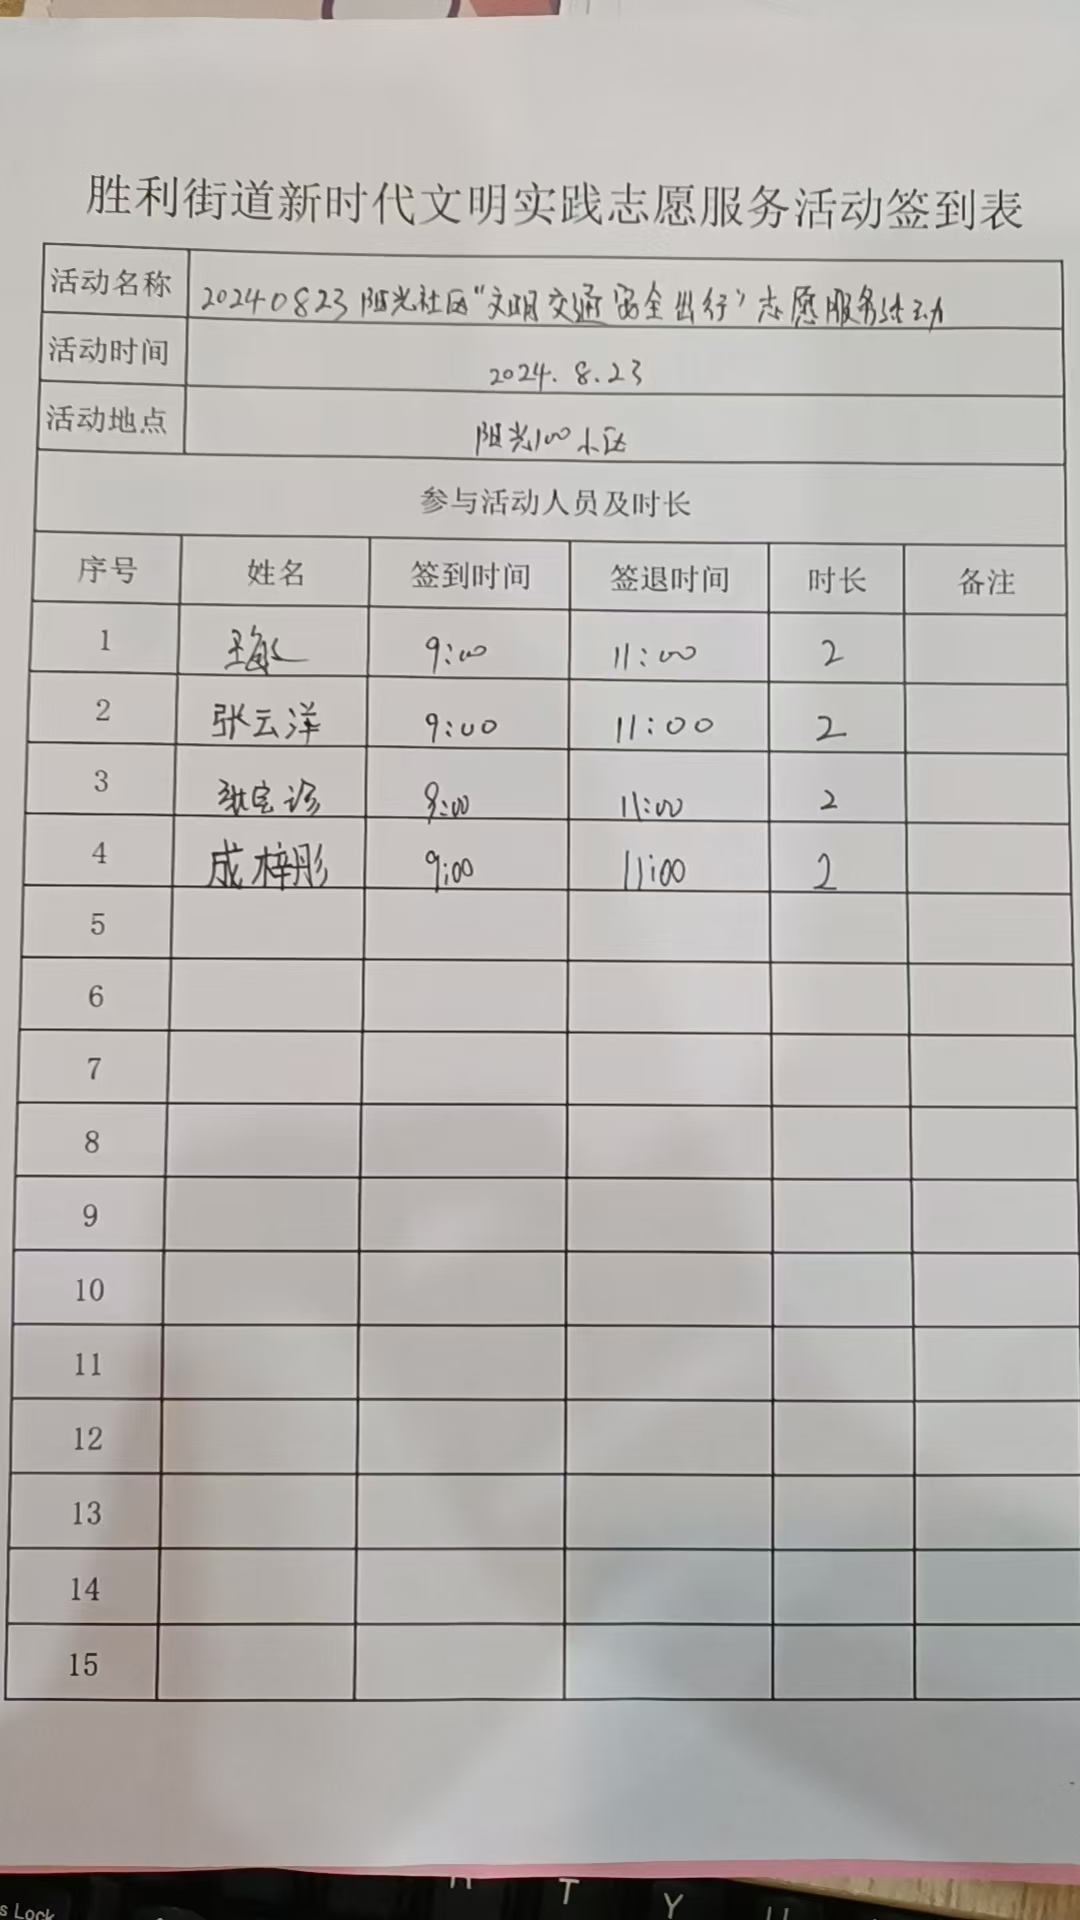 胜利街道新时代文明实践志愿服务活动签到表
活动名称 20240823阳光社区"文明交通 安全出行"志愿服务活动
活动时间 2024.8.23
活动地点 阳光100小区
参与活动人员及时长
序号 姓名 签到时间 签退时间 时长 备注
1 王敏 9:00 11:00 2
2 张云洋 9:00 11:00 2
3 9:00 11:00 2
4 成梓彤 9:00 11:00 2
5
6
7
8
9
10
11
12
13
14
15
T Y U
s Lock